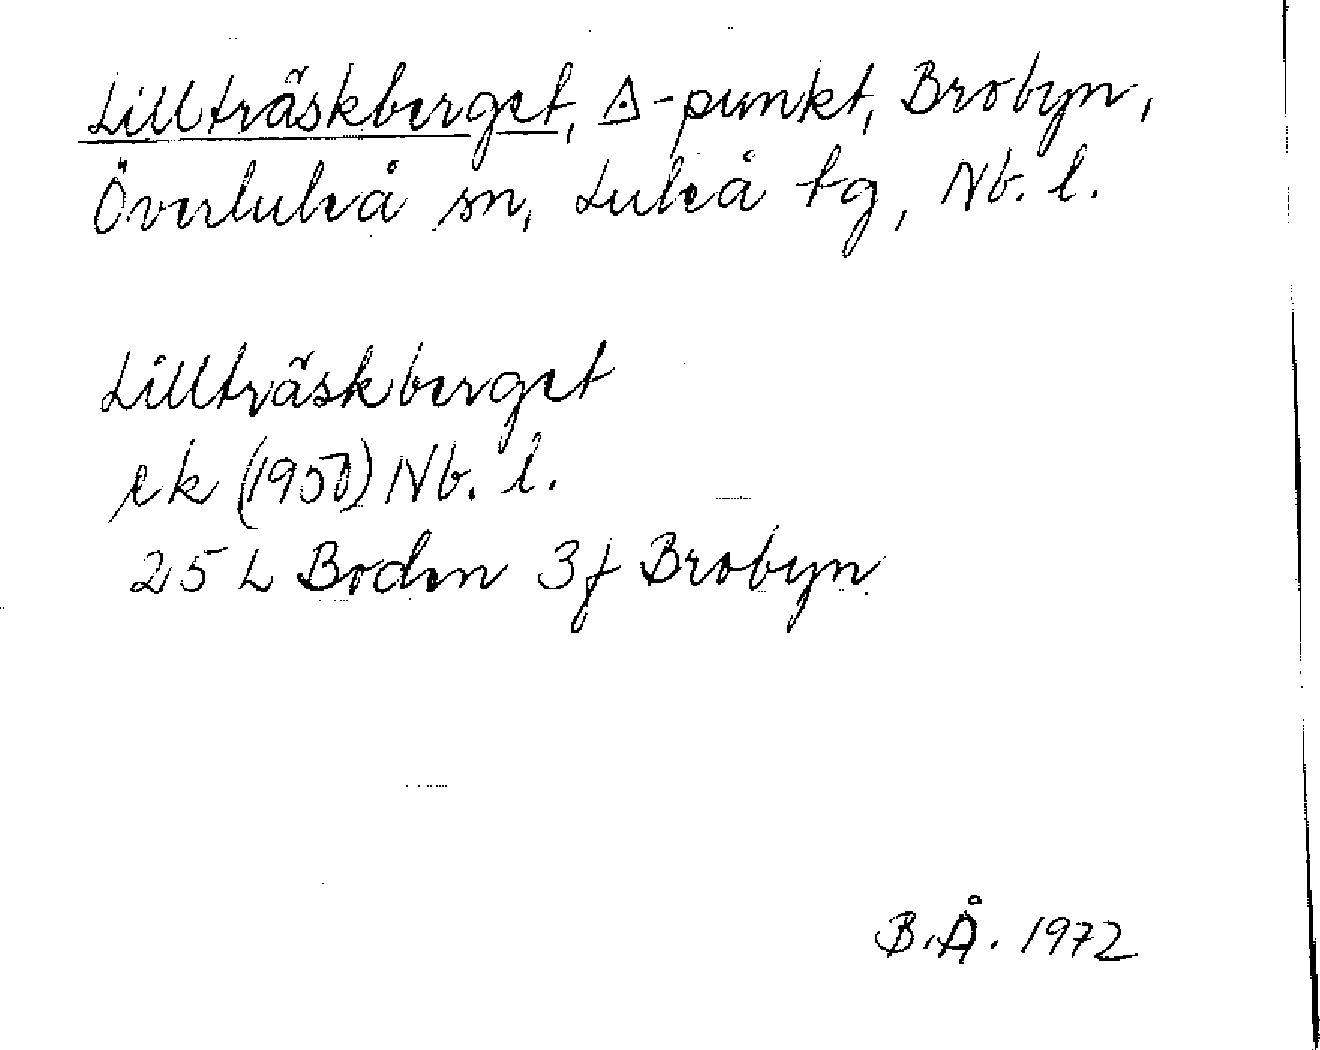 Lillträskberget, △-punkt, Brobyn,
Överluleå sn, Luleå tg, Nb. l.
Lillträskberget
ek (1950) Nb. l.
25 L Boden 3f Brobyn
B.Å. 1972